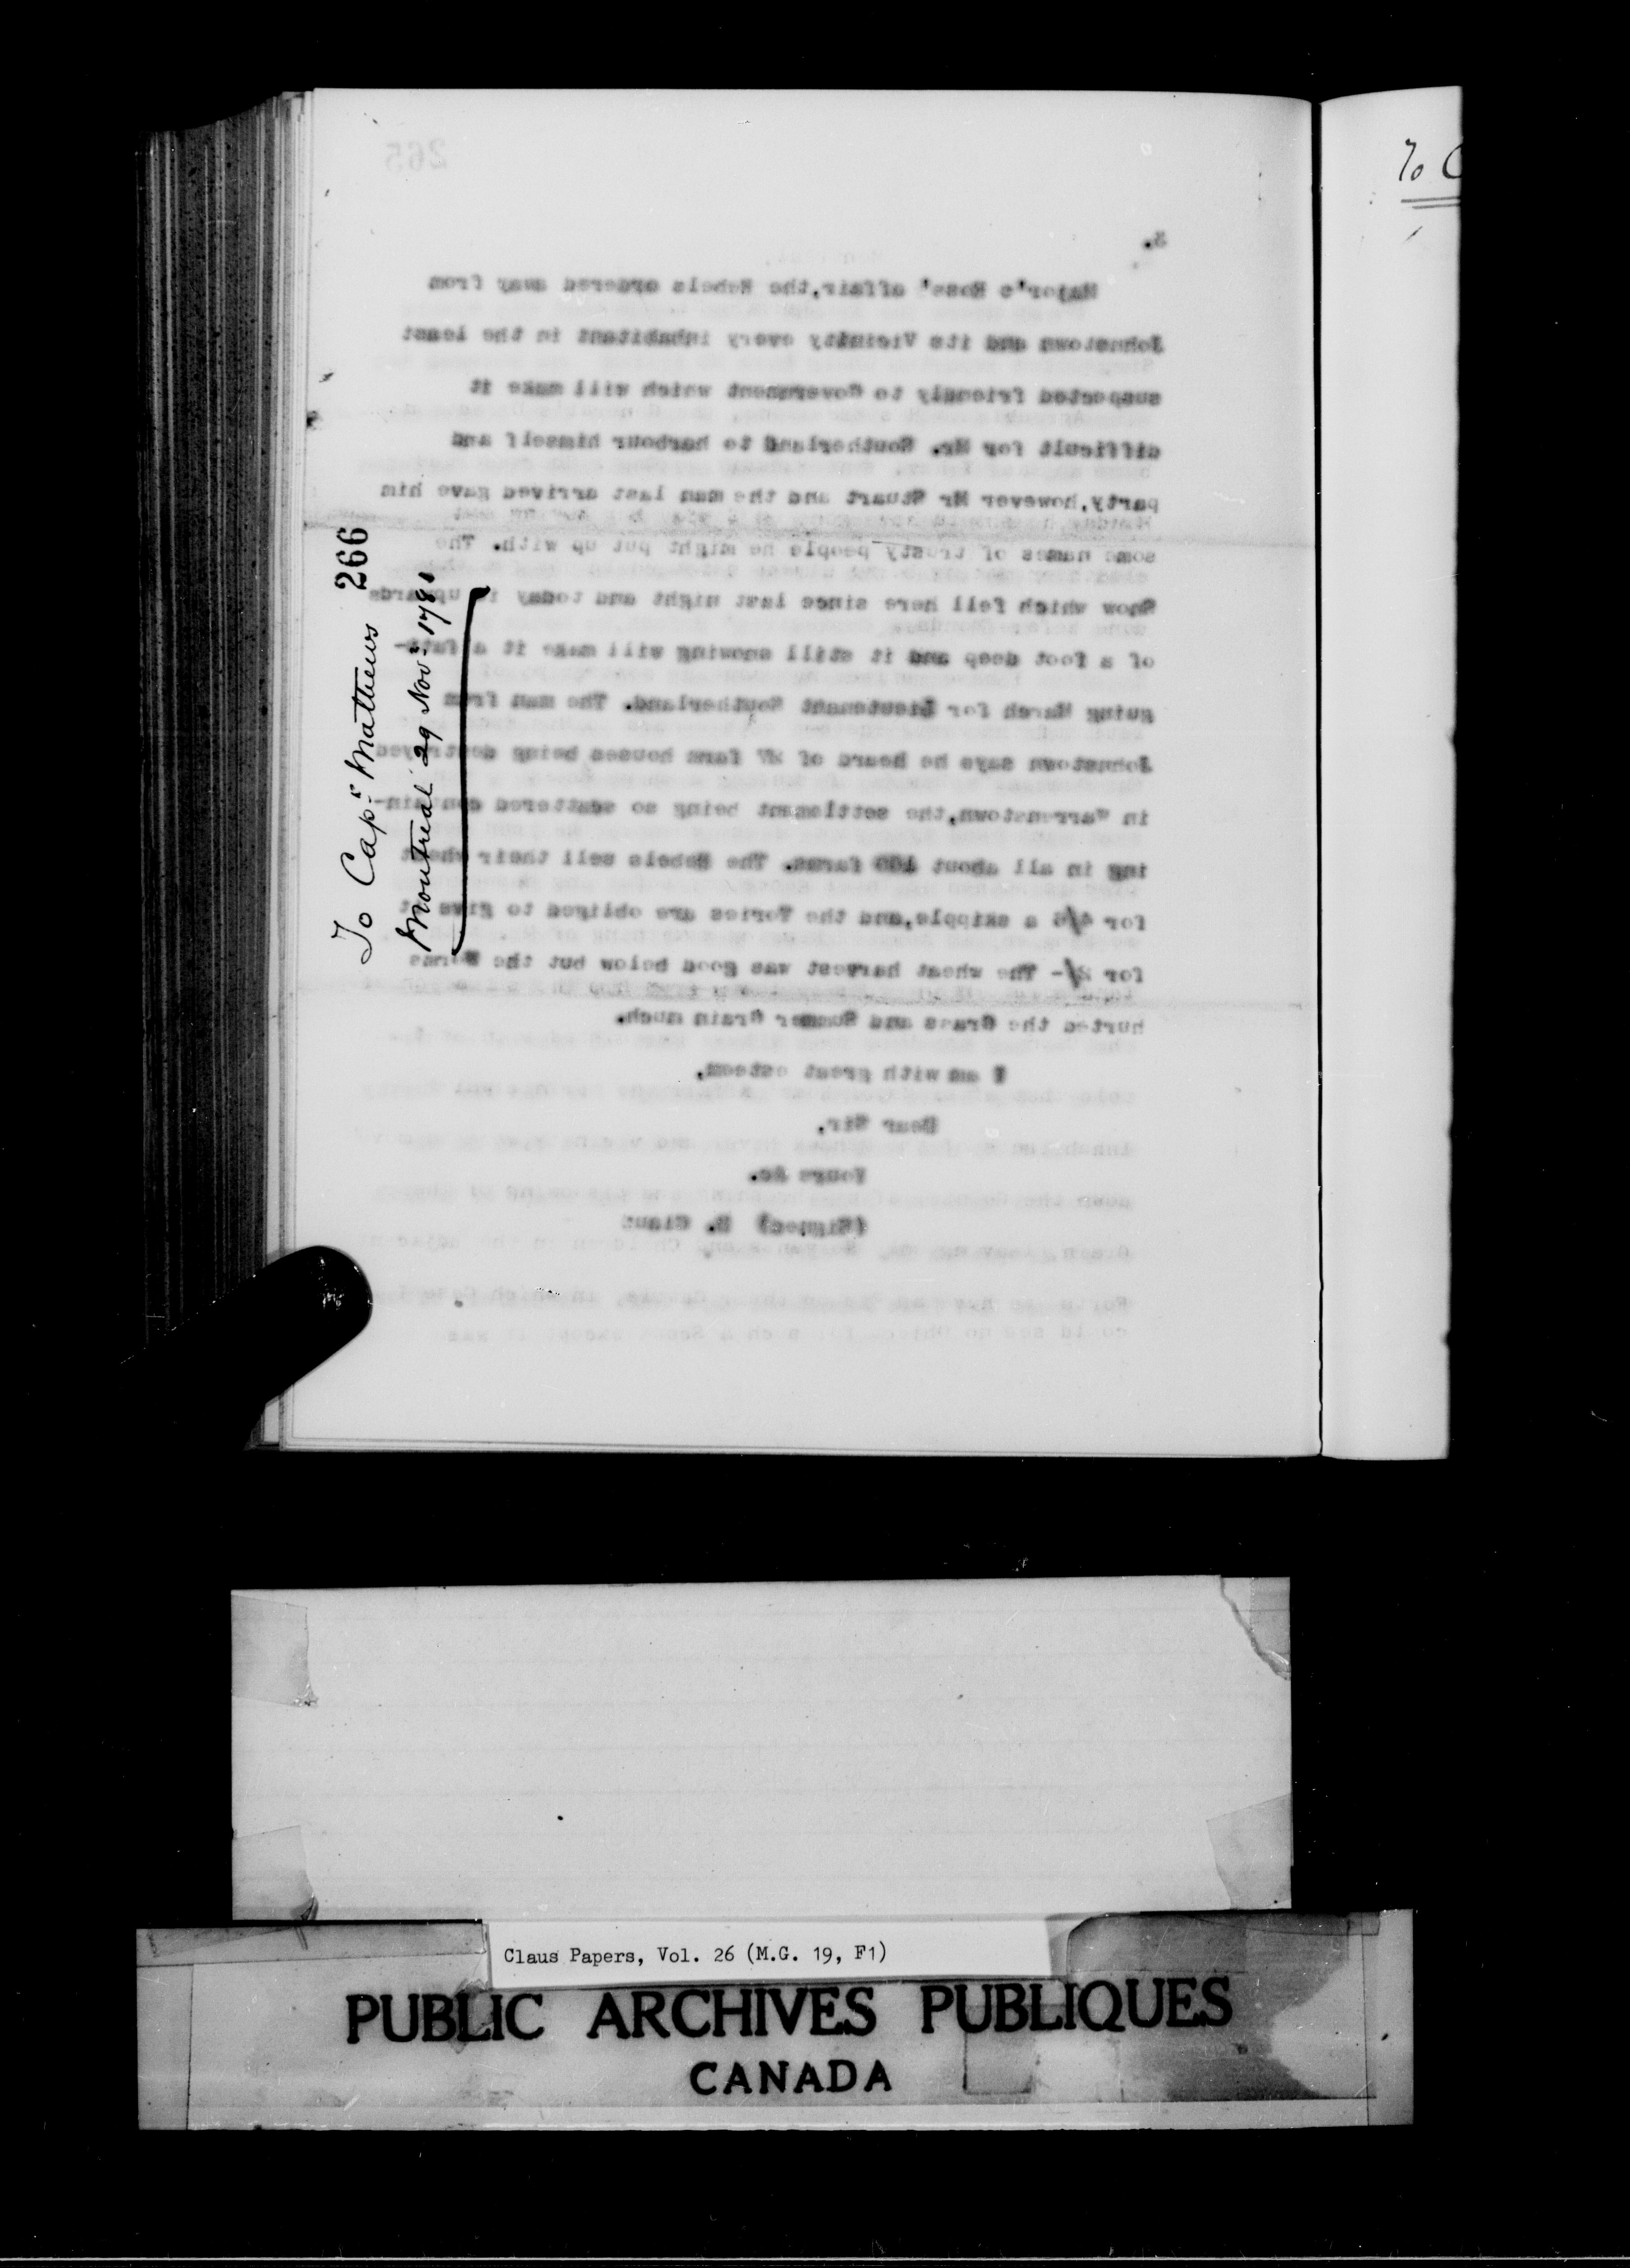 266
To Capt. Mathews
Montreal 29 Nov.
To C
265
3.
Major's Ross' affair,the Rebels ordered away from
Johnstown and its Vicinity every inhabitant in the least
suspected friendly to Government which will make it
difficult for Mr. Southerland to harbour himself and
party,however Mr Stuart and the man last arrived gave him
some names of trusty people he might put up with. The
Snow which fell here since last night and today is upwards
of a foot deep and it still snowing will make it a fati-
guing March for Lieutenant Southerland. The man from
Johnstown says he heard of farm houses being destroyed
in Warrenstown,the settlement being so scattered contain-
ing in all about 100 farms. The Rebels sell their wheat
for 4/6 a skipple,and the Tories are obliged to give it
for 2/- The wheat harvest was good below but the Worms
hurted the Grass and Summer Grain much.
I am with great esteem,
Dear Sir,
Yours &c.
(Signed) D. Claus
Claus Papers, Vol. 26 (M.G. 19, F1)
PUBLIC ARCHIVES PUBLIQUES
CANADA